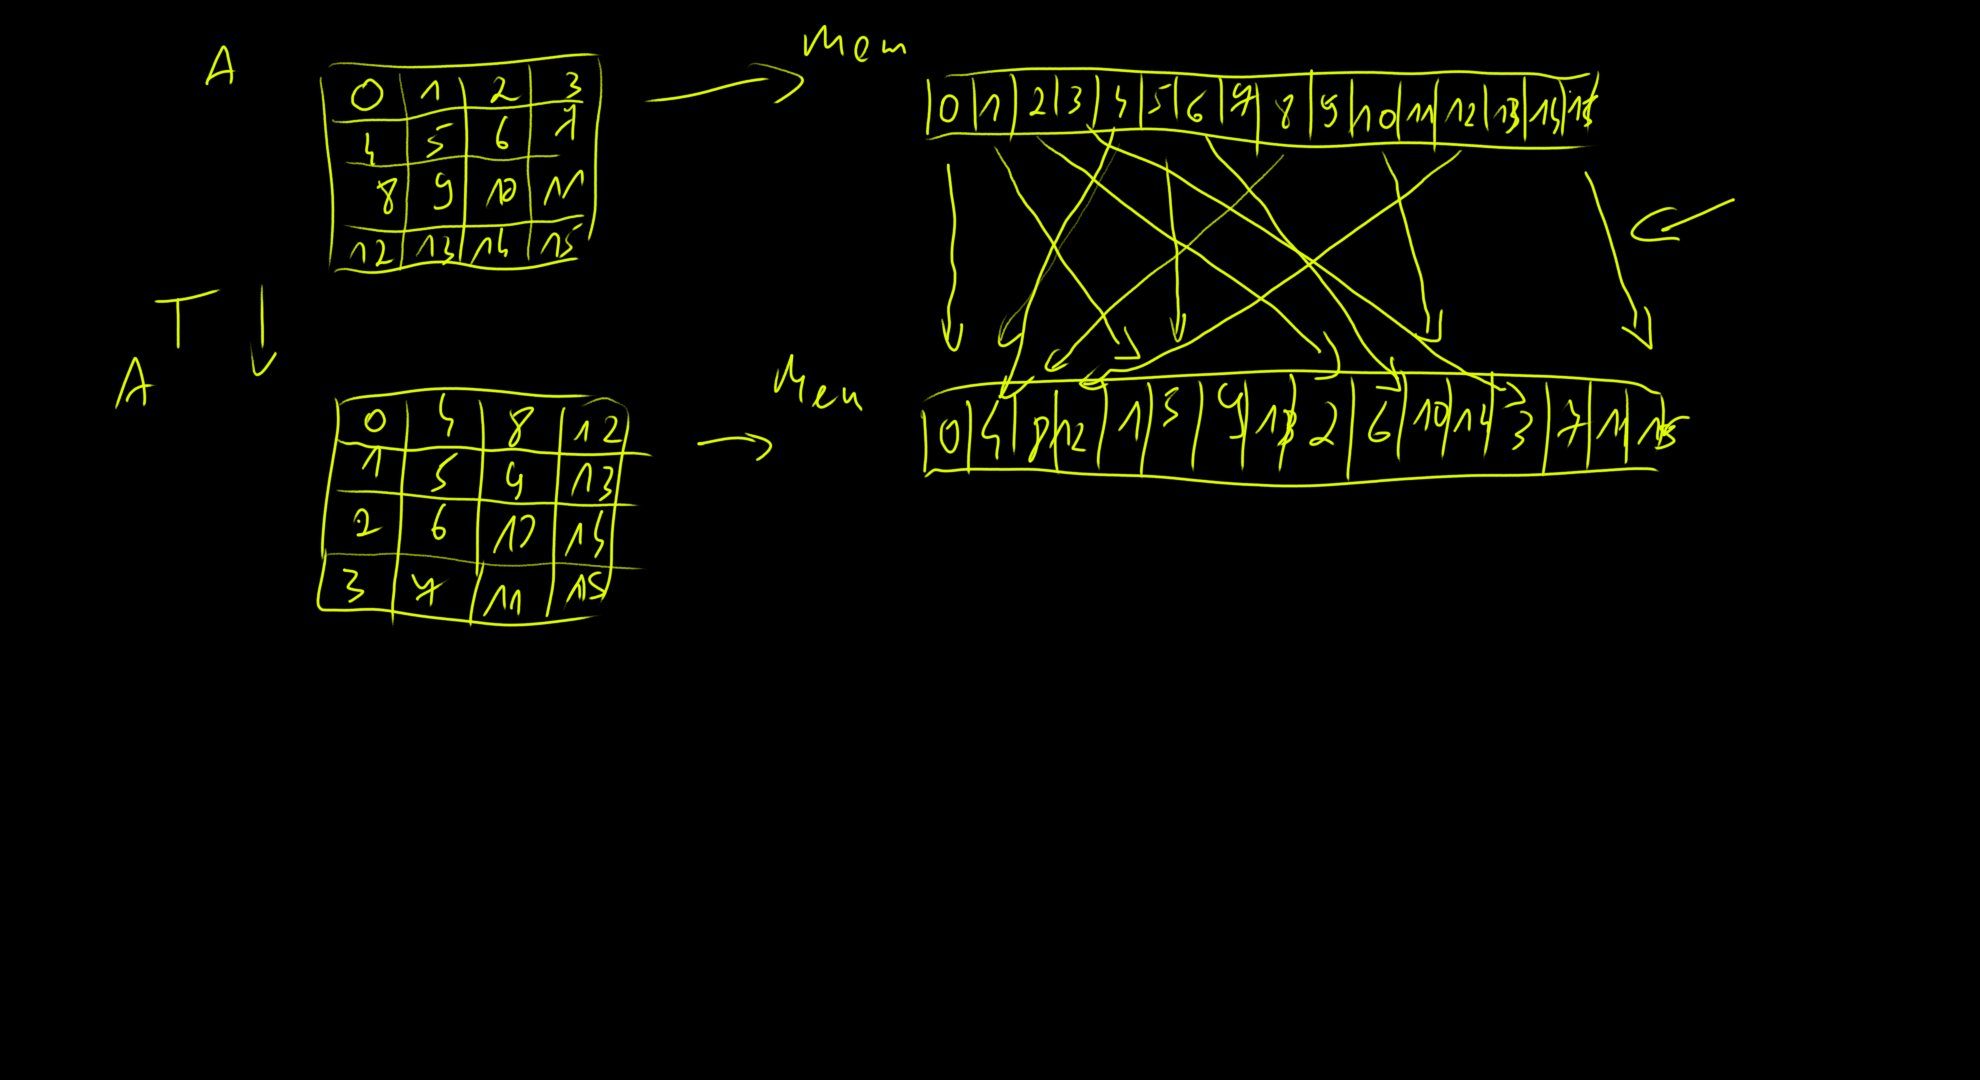 A
0 1 2 3
4 5 6 7
8 9 10 11
12 13 14 15
Mem
0 1 2 3 4 5 6 7 8 9 10 11 12 13 14 15
A T
0 4 8 12
1 5 9 13
2 6 10 14
3 7 11 15
Mem
0 4 8 12 1 5 9 13 2 6 10 14 3 7 11 15